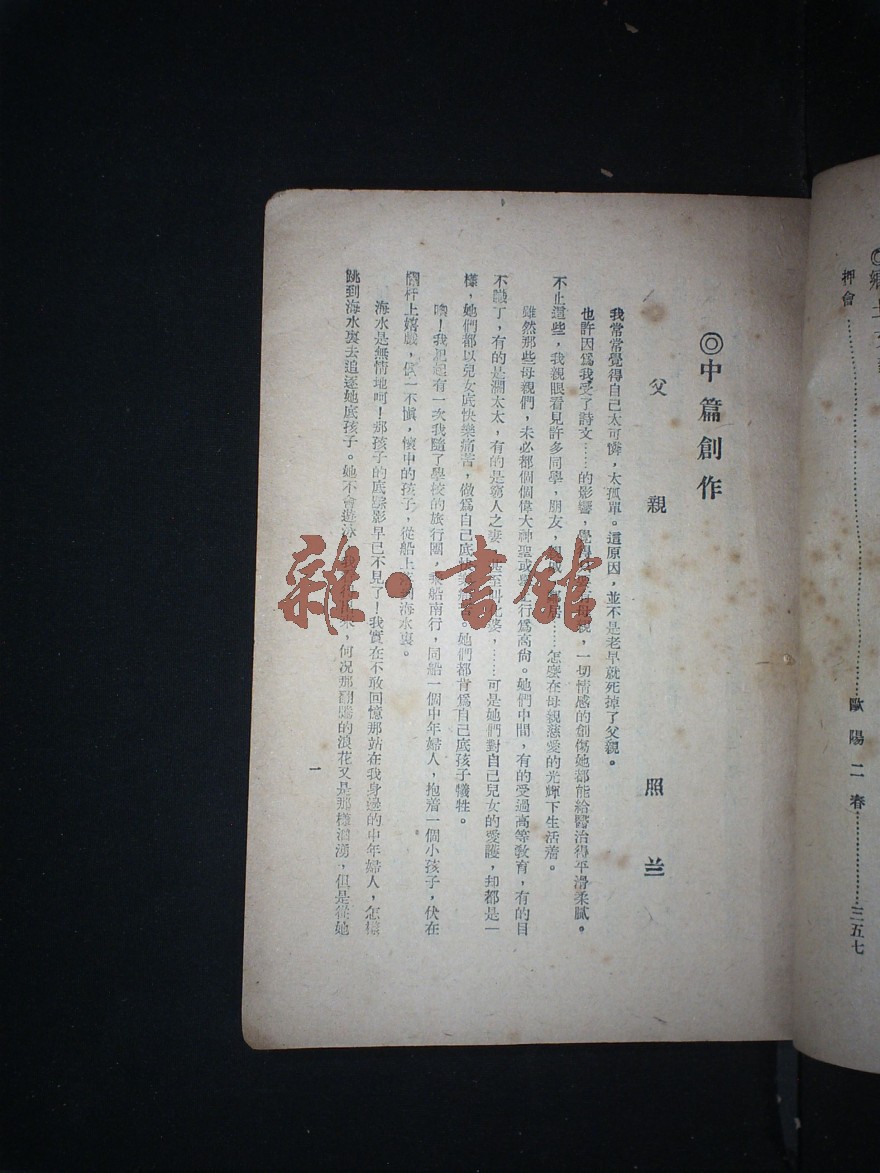 鄉土文
押會……歐陽二春……三五七
◎中篇創作
父親 照兰
我常常覺得自己太可憐，太孤單。這原因，並不是老早就死掉了父親。
也許因爲我受了詩文……的影響，覺得 一切情感的創傷她都能給醫治得平滑柔膩。
不止這些，我親眼看見許多同學，朋友， ……怎麽在母親慈愛的光輝下生活着。
雖然那些母親們，未必都個個偉大神聖或學 行爲高尙。她們中間，有的受過高等敎育，有的目
不識丁，有的是濶太太，有的是窮人之妻，甚至叫化婆，……可是她們對自己兒女的愛護，却都是一
樣，她們都以兒女底快樂痛苦，做爲自己底快樂痛苦。她們都肯爲自己底孩子犧牲。
唉！我想起有一次我隨了學校的旅行團，乘船南行，同船一個中年婦人，抱着一個小孩子，伏在
欄杆上嬉戲，偶一不愼，懷中的孩子，從船上 海水裏。
海水是無情地呵！那孩子的底踪影早已不見了！我實在不敢回憶那站在我身邊的中年婦人，怎樣
跳到海水裏去追逐她底孩子。她不會遊泳， ，何况那翻騰的浪花又是那樣洶湧，但是從她
一
雜·書館